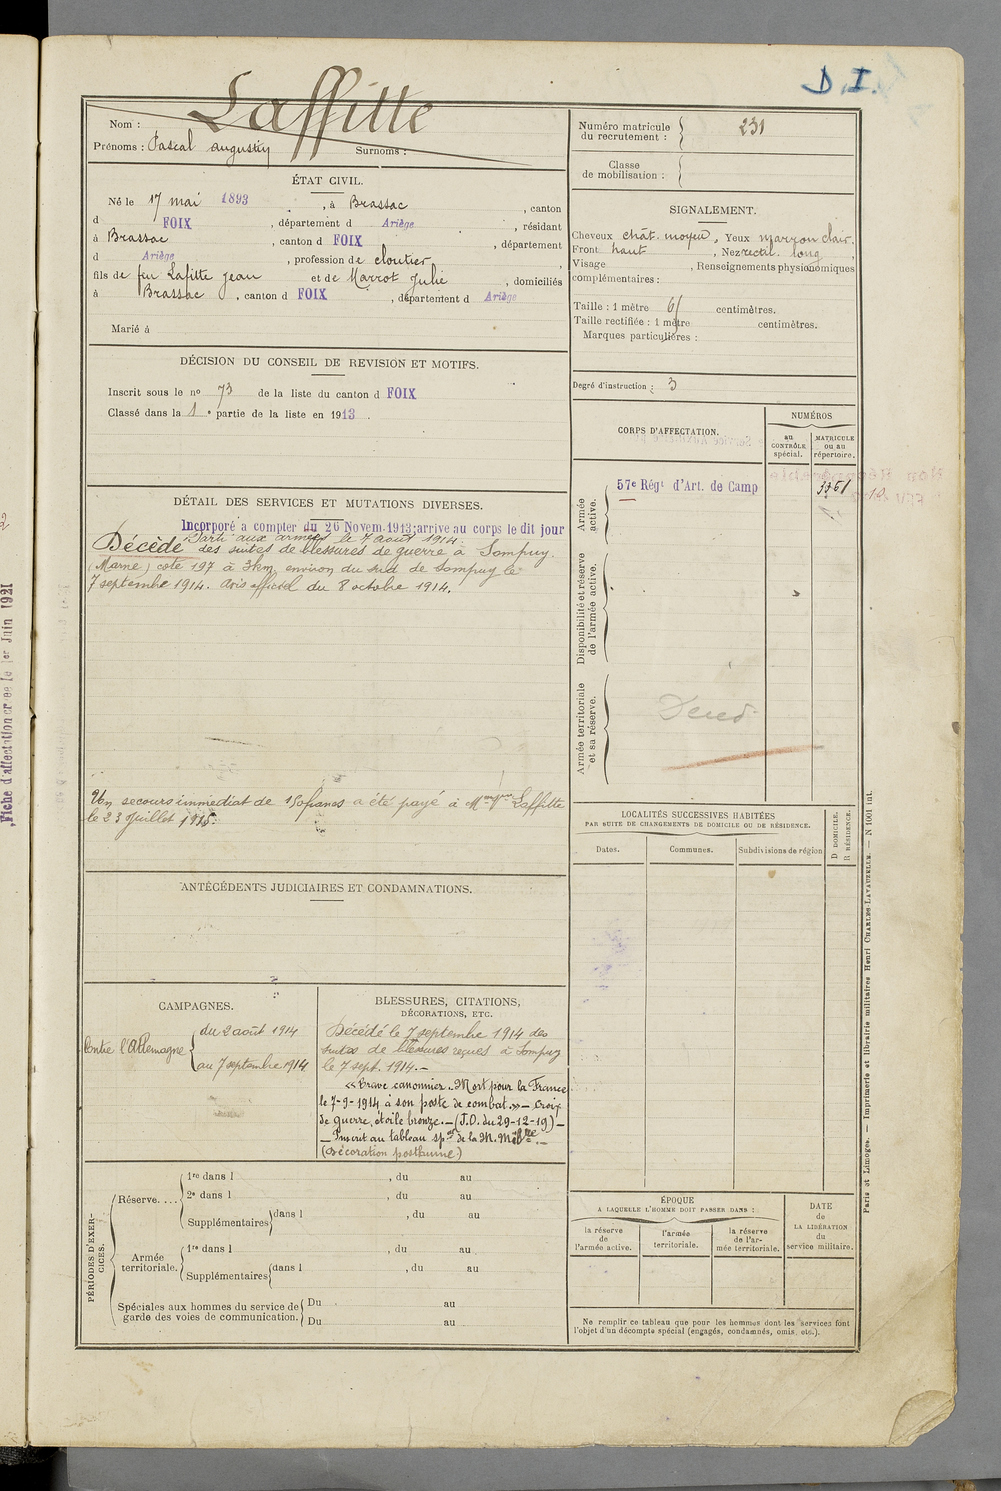 D.I.
Nom : Laffitte
Prénoms : Pascal Augustin Surnoms :
ÉTAT CIVIL.
Né le 17 mai 1893, à Brassac, canton
d FOIX, département d Ariège, résidant
à Brassac, canton d FOIX, département
d Ariège, profession de cloutier,
fils de feu Lafitte Jean et de Marrot Julie, domiciliés
à Brassac, canton d FOIX, département d Ariège
Marié à
DÉCISION DU CONSEIL DE REVISION ET MOTIFS.
Inscrit sous le no 73 de la liste du canton d FOIX
Classé dans la 1e partie de la liste en 1913.
DÉTAIL DES SERVICES ET MUTATIONS DIVERSES.
Incorporé à compter du 26 Novem. 1913; arrive au corps le dit jour
Parti aux armées le 7 août 1914.
Décédé des suites de blessures de guerre à Sompuy.
(Marne) coté 197 à 3km environ du sud de Sompuy le
7 septembre 1914. Avis officiel du 8 octobre 1914.
Un secours immédiat de 150 francs a été payé à Mme Vve Laffitte
le 23 Juillet 1915.
ANTÉCÉDENTS JUDICIAIRES ET CONDAMNATIONS.
CAMPAGNES.
Contre l'Allemagne
du 2 août 1914
au 7 septembre 1914
BLESSURES, CITATIONS,
DÉCORATIONS, ETC.
Décédé le 7 septembre 1914 des
suites de blessures reçues à Sompuy
le 7 sept. 1914.-
«Brave canonnier. Mort pour la France
le 7-9-1914 à son poste de combat.» - Croix
de guerre, étoile bronze. - (J.O. du 29-12-19) -
- Inscrit au tableau spal de la M. Mre. -
(Décoration posthume)
PÉRIODES D'EXERCICES.
Réserve....
1re dans l , du au
2e dans l , du au
Supplémentaires dans l , du au
Armée territoriale.
1re dans l , du au
Supplémentaires dans l , du au
Spéciales aux hommes du service de Du au
garde des voies de communication. Du au
Numéro matricule
du recrutement : 231
Classe
de mobilisation :
SIGNALEMENT.
Cheveux chât. moyen, Yeux marron clair.
Front haut, Nez rectil. long,
Visage , Renseignements physionomiques
complémentaires :
Taille : 1 mètre 61 centimètres.
Taille rectifiée : 1 mètre centimètres.
Marques particulières :
Degré d'instruction : 3
CORPS D'AFFECTATION.
NUMÉROS
au
CONTRÔLE
spécial.
MATRICULE
ou au
répertoire.
Armée
active.
57e Régt d'Art. de Camp
Disponibilité et réserve
de l'armée active.
Armée territoriale
et sa réserve.
LOCALITÉS SUCCESSIVES HABITÉES
PAR SUITE DE CHANGEMENTS DE DOMICILE OU DE RÉSIDENCE.
D DOMICILE.
R RÉSIDENCE.
Dates. Communes. Subdivisions de région
ÉPOQUE
A LAQUELLE L'HOMME DOIT PASSER DANS :
la réserve
de
l'armée active.
l'armée
territoriale.
la réserve
de l'ar-
mée territoriale.
DATE
de
LA LIBÉRATION
du
service militaire.
Ne remplir ce tableau que pour les hommes dont les services font
l'objet d'un décompte spécial (engagés, condamnés, omis, etc.).
Paris et Limoges. — Imprimerie et librairie militaires Henri CHARLES-LAVAUZELLE. — N 1001 int.
Fiche d'affectation créée le 1er Juin 1921